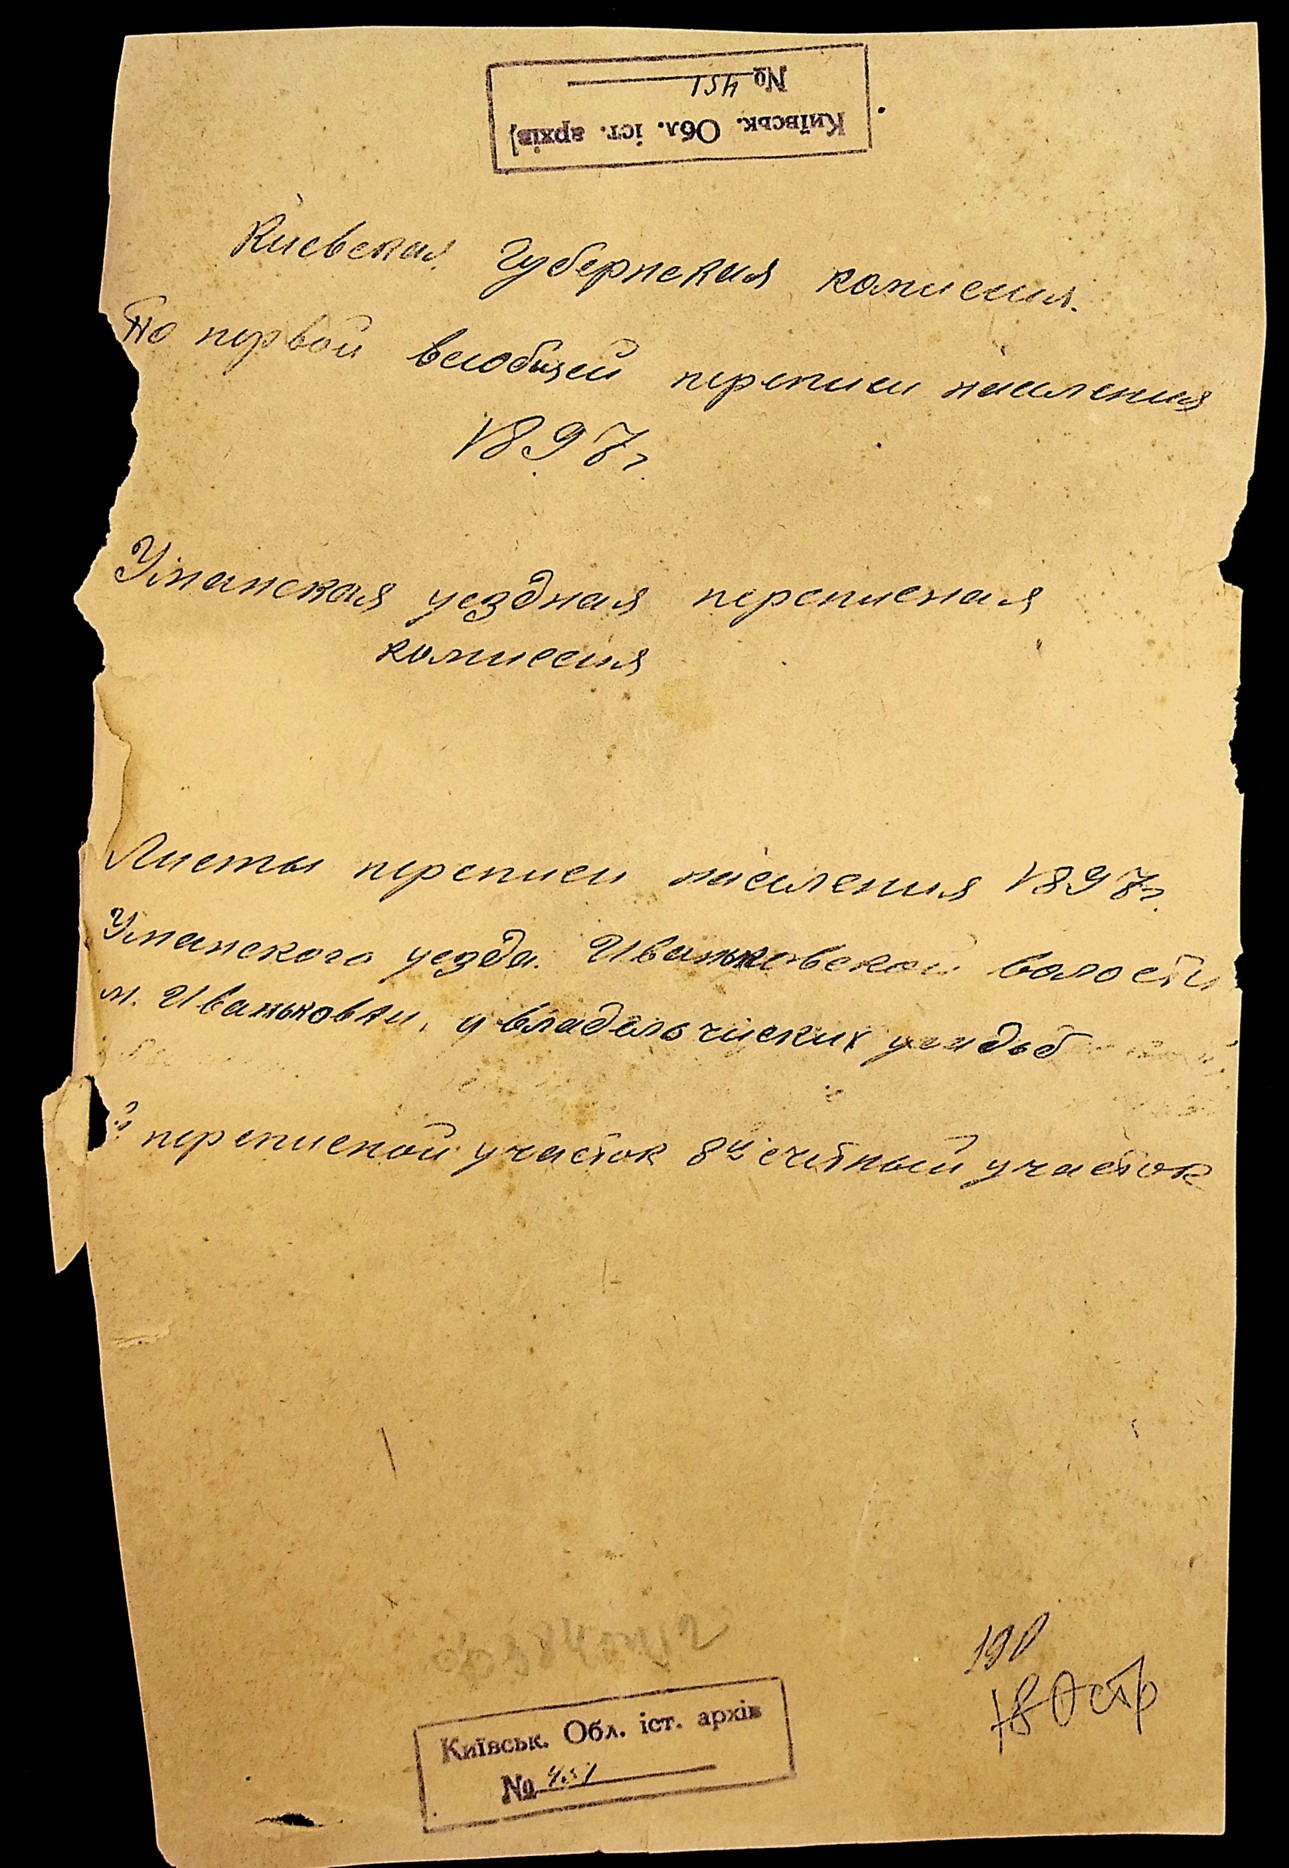 Київськ. Обл. іст. архів
№ 451
Киевская Губернская комисия.
По первой всеобщей переписи населения
1897г.
Уманская уездная переписная
комиссия
Листы переписи населения 1897г.
Уманского уезда. Иваньковской волости
м. Иваньовки, у владельчиских усадьб
переписной участок 8й счётный участок
190
180 стр
Київськ. Обл. іст. архів
№ 451